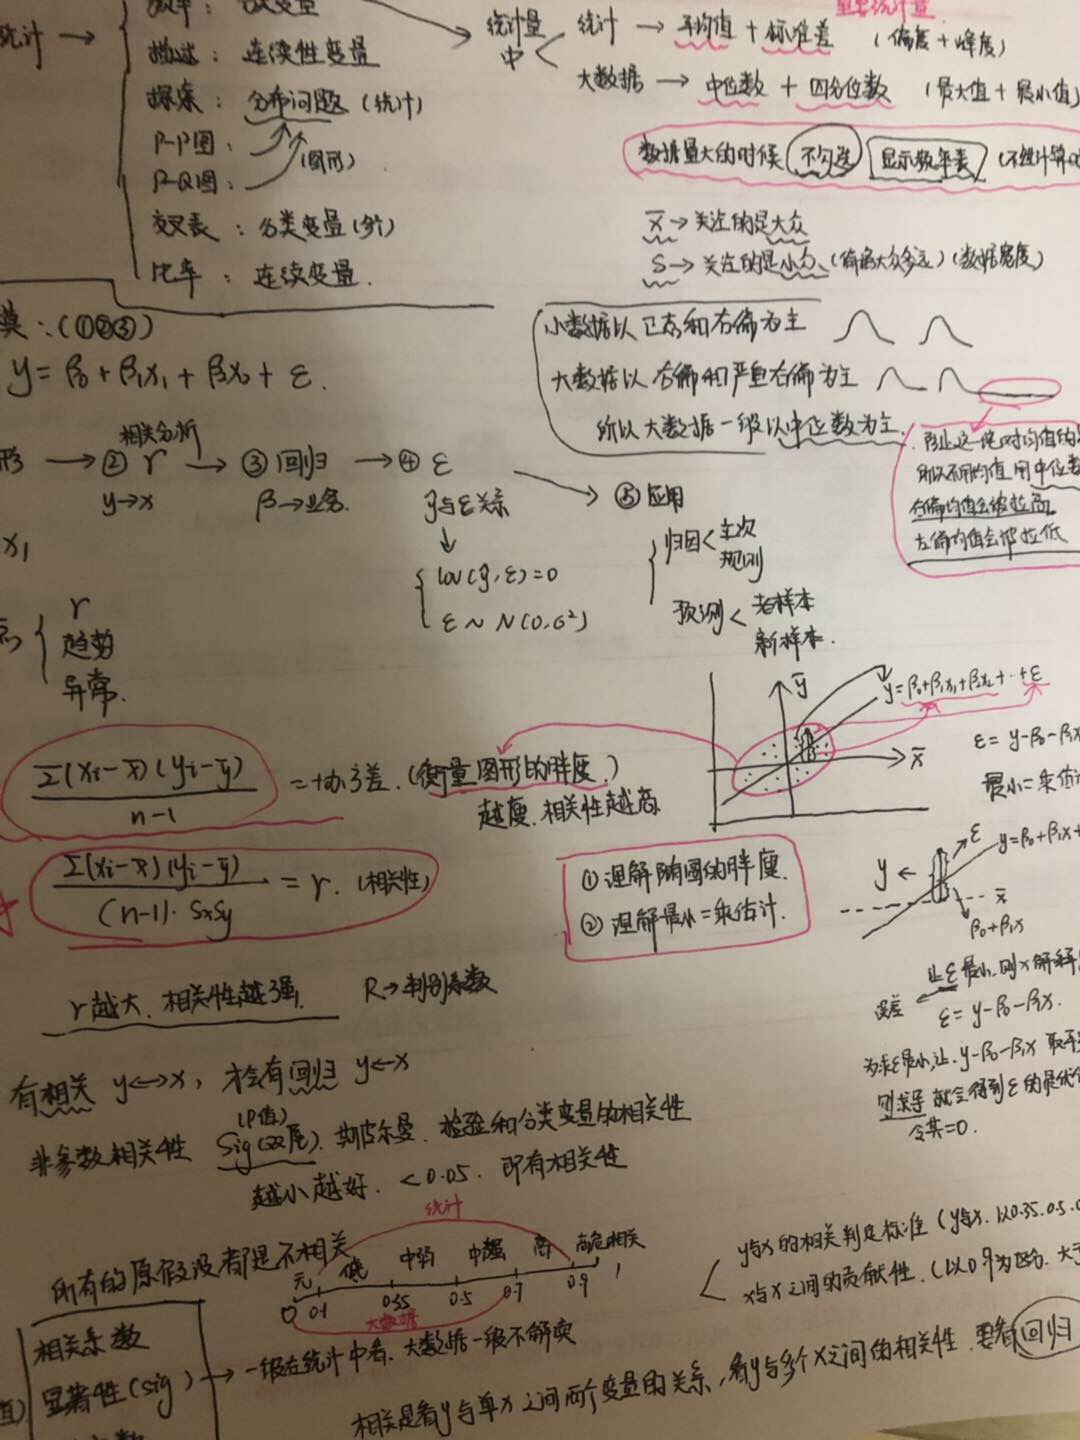 重要统计量
统计 →
描述：连续性变量
探索：分布问题（统计）
P-P图：
(图形)
P-Q图：
交叉表：分类变量(阶)
比率：连续变量.
统计量中
统计 → 平均值 + 标准差 （偏度 + 峰度）
大数据 → 中位数 + 四分位数 （最大值 + 最小值）
数据量大的时候 不勾选 显示频率表
x̄ → 关注的是大众
S → 关注的是小众、（偏离大众多远）（数据宽度）
(①②③)
y = β₀ + β₁x₁ + β₂x₂ + ε.
小数据以正态和右偏为主
大数据以右偏和严重右偏为主
所以大数据一般以中位数为主.
所以不用均值 用中位数
右偏均值会被拉高
左偏均值会被拉低
相关分析
→ ② r → ③ 回归 → ④ ε → ⑤ 应用
y→x
β→业务.
ŷ与ε关系
cov(ŷ, ε) = 0
ε ~ N(0, σ²)
归因 < 主次 规则
预测 < 老样本 新样本.
x₁
r
趋势
异常.
ȳ
y = β₀ + β₁x₁ + β₂x₂ + ·· + ε
x̄
Σ(xᵢ-x̄)(yᵢ-ȳ) / n-1 = 协方差. (衡量图形的胖度.)
越瘦. 相关性越高.
Σ(xᵢ-x̄)(yᵢ-ȳ) / (n-1)·SxSy = r. (相关性)
① 理解椭圆的胖瘦.
② 理解最小二乘估计.
y ←
ε
x̄
β₀+β₁x
r越大. 相关性越强.
R → 判别系数
让ε最小. 则x解释
误差 ←
ε = y-β₀-β₁x.
为求ε最小, 让 y-β₀-β₁x
则求导 就会得到ε的最优
令其=0.
有相关 y↔x, 才会有回归 y←x
(P值)
非参数相关性 Sig(双尾). 斯皮尔曼. 检验和分类变量的相关性
越小越好. < 0.05. 即有相关性
所有的原假设都是不相关
统计
无 低 中弱 中强 高 高危相关
0 0.1 0.35 0.5 0.7 0.9 1
大数据
y与x的相关判定标准 (y与x. 以0.35. 0.5.
x与x之间的贡献性. (以0.9为区分.
相关系数
显著性(sig)
→ 一般在统计中看. 大数据一般不解决
相关是看y与单x之间两个变量的关系, 看y与多个x之间的相关性. 要看回归